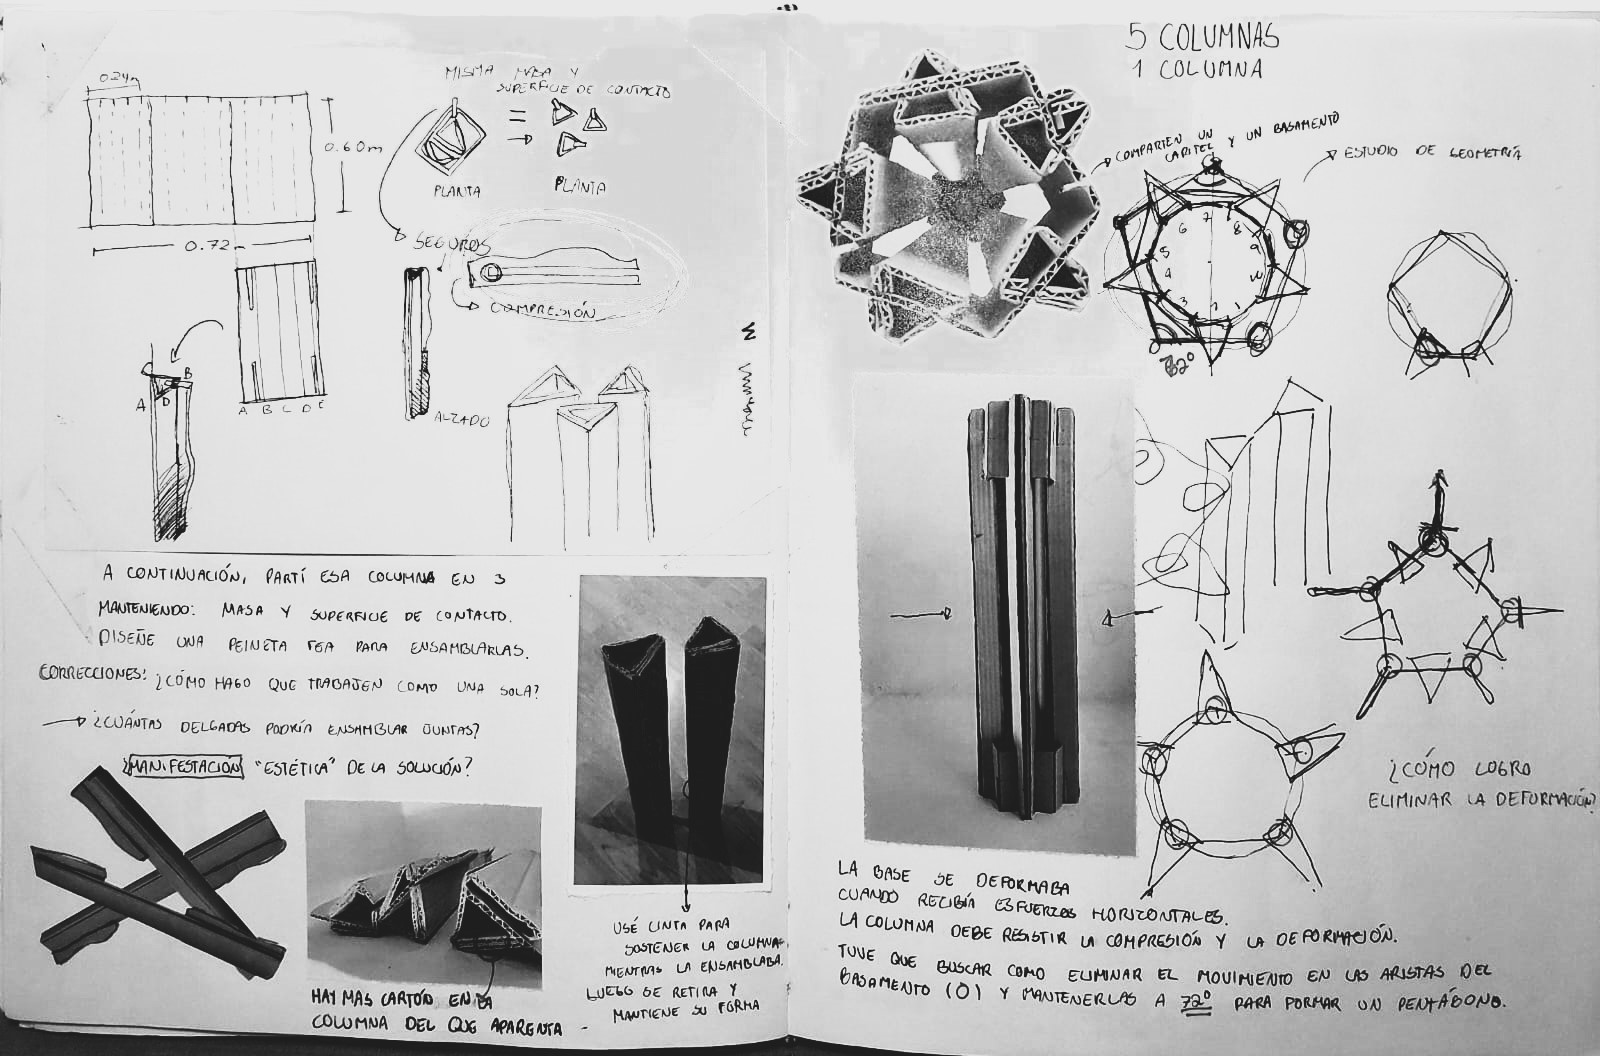 0.24m
0.60m
0.72m
MISMA MASA Y
SUPERFICIE DE CONTACTO
=
PLANTA
PLANTA
SEGUROS
COMPRESIÓN
ALZADO
C B
A D
A B C D E
A CONTINUACIÓN, PARTÍ ESA COLUMNA EN 3
MANTENIENDO: MASA Y SUPERFICIE DE CONTACTO.
DISEÑE UNA PEINETA FEA PARA ENSAMBLARLAS.
CORRECCIONES: ¿CÓMO HAGO QUE TRABAJEN COMO UNA SOLA?
¿CUÁNTAS DELGADAS PODRÍA ENSAMBLAR JUNTAS?
¿MANIFESTACION "ESTÉTICA" DE LA SOLUCIÓN?
HAY MAS CARTÓN EN LA
COLUMNA DEL QUE APARENTA
USÉ CINTA PARA
SOSTENER LA COLUMNA
MIENTRAS LA ENSAMBLABA.
LUEGO SE RETIRA Y
MANTIENE SU FORMA
5 COLUMNAS
1 COLUMNA
COMPARTEN UN
CAPITEL Y UN BASAMENTO
ESTUDIO DE GEOMETRÍA
7
6 8
5 9
4 10
3 1
2
72°
¿CÓMO LOGRO
ELIMINAR LA DEFORMACIÓN?
LA BASE SE DEFORMABA
CUANDO RECIBÍA ESFUERZOS HORIZONTALES.
LA COLUMNA DEBE RESISTIR LA COMPRESIÓN Y LA DEFORMACIÓN.
TUVE QUE BUSCAR COMO ELIMINAR EL MOVIMIENTO EN LAS ARISTAS DEL
BASAMENTO (O) Y MANTENERLAS A 72° PARA FORMAR UN PENTÁGONO.